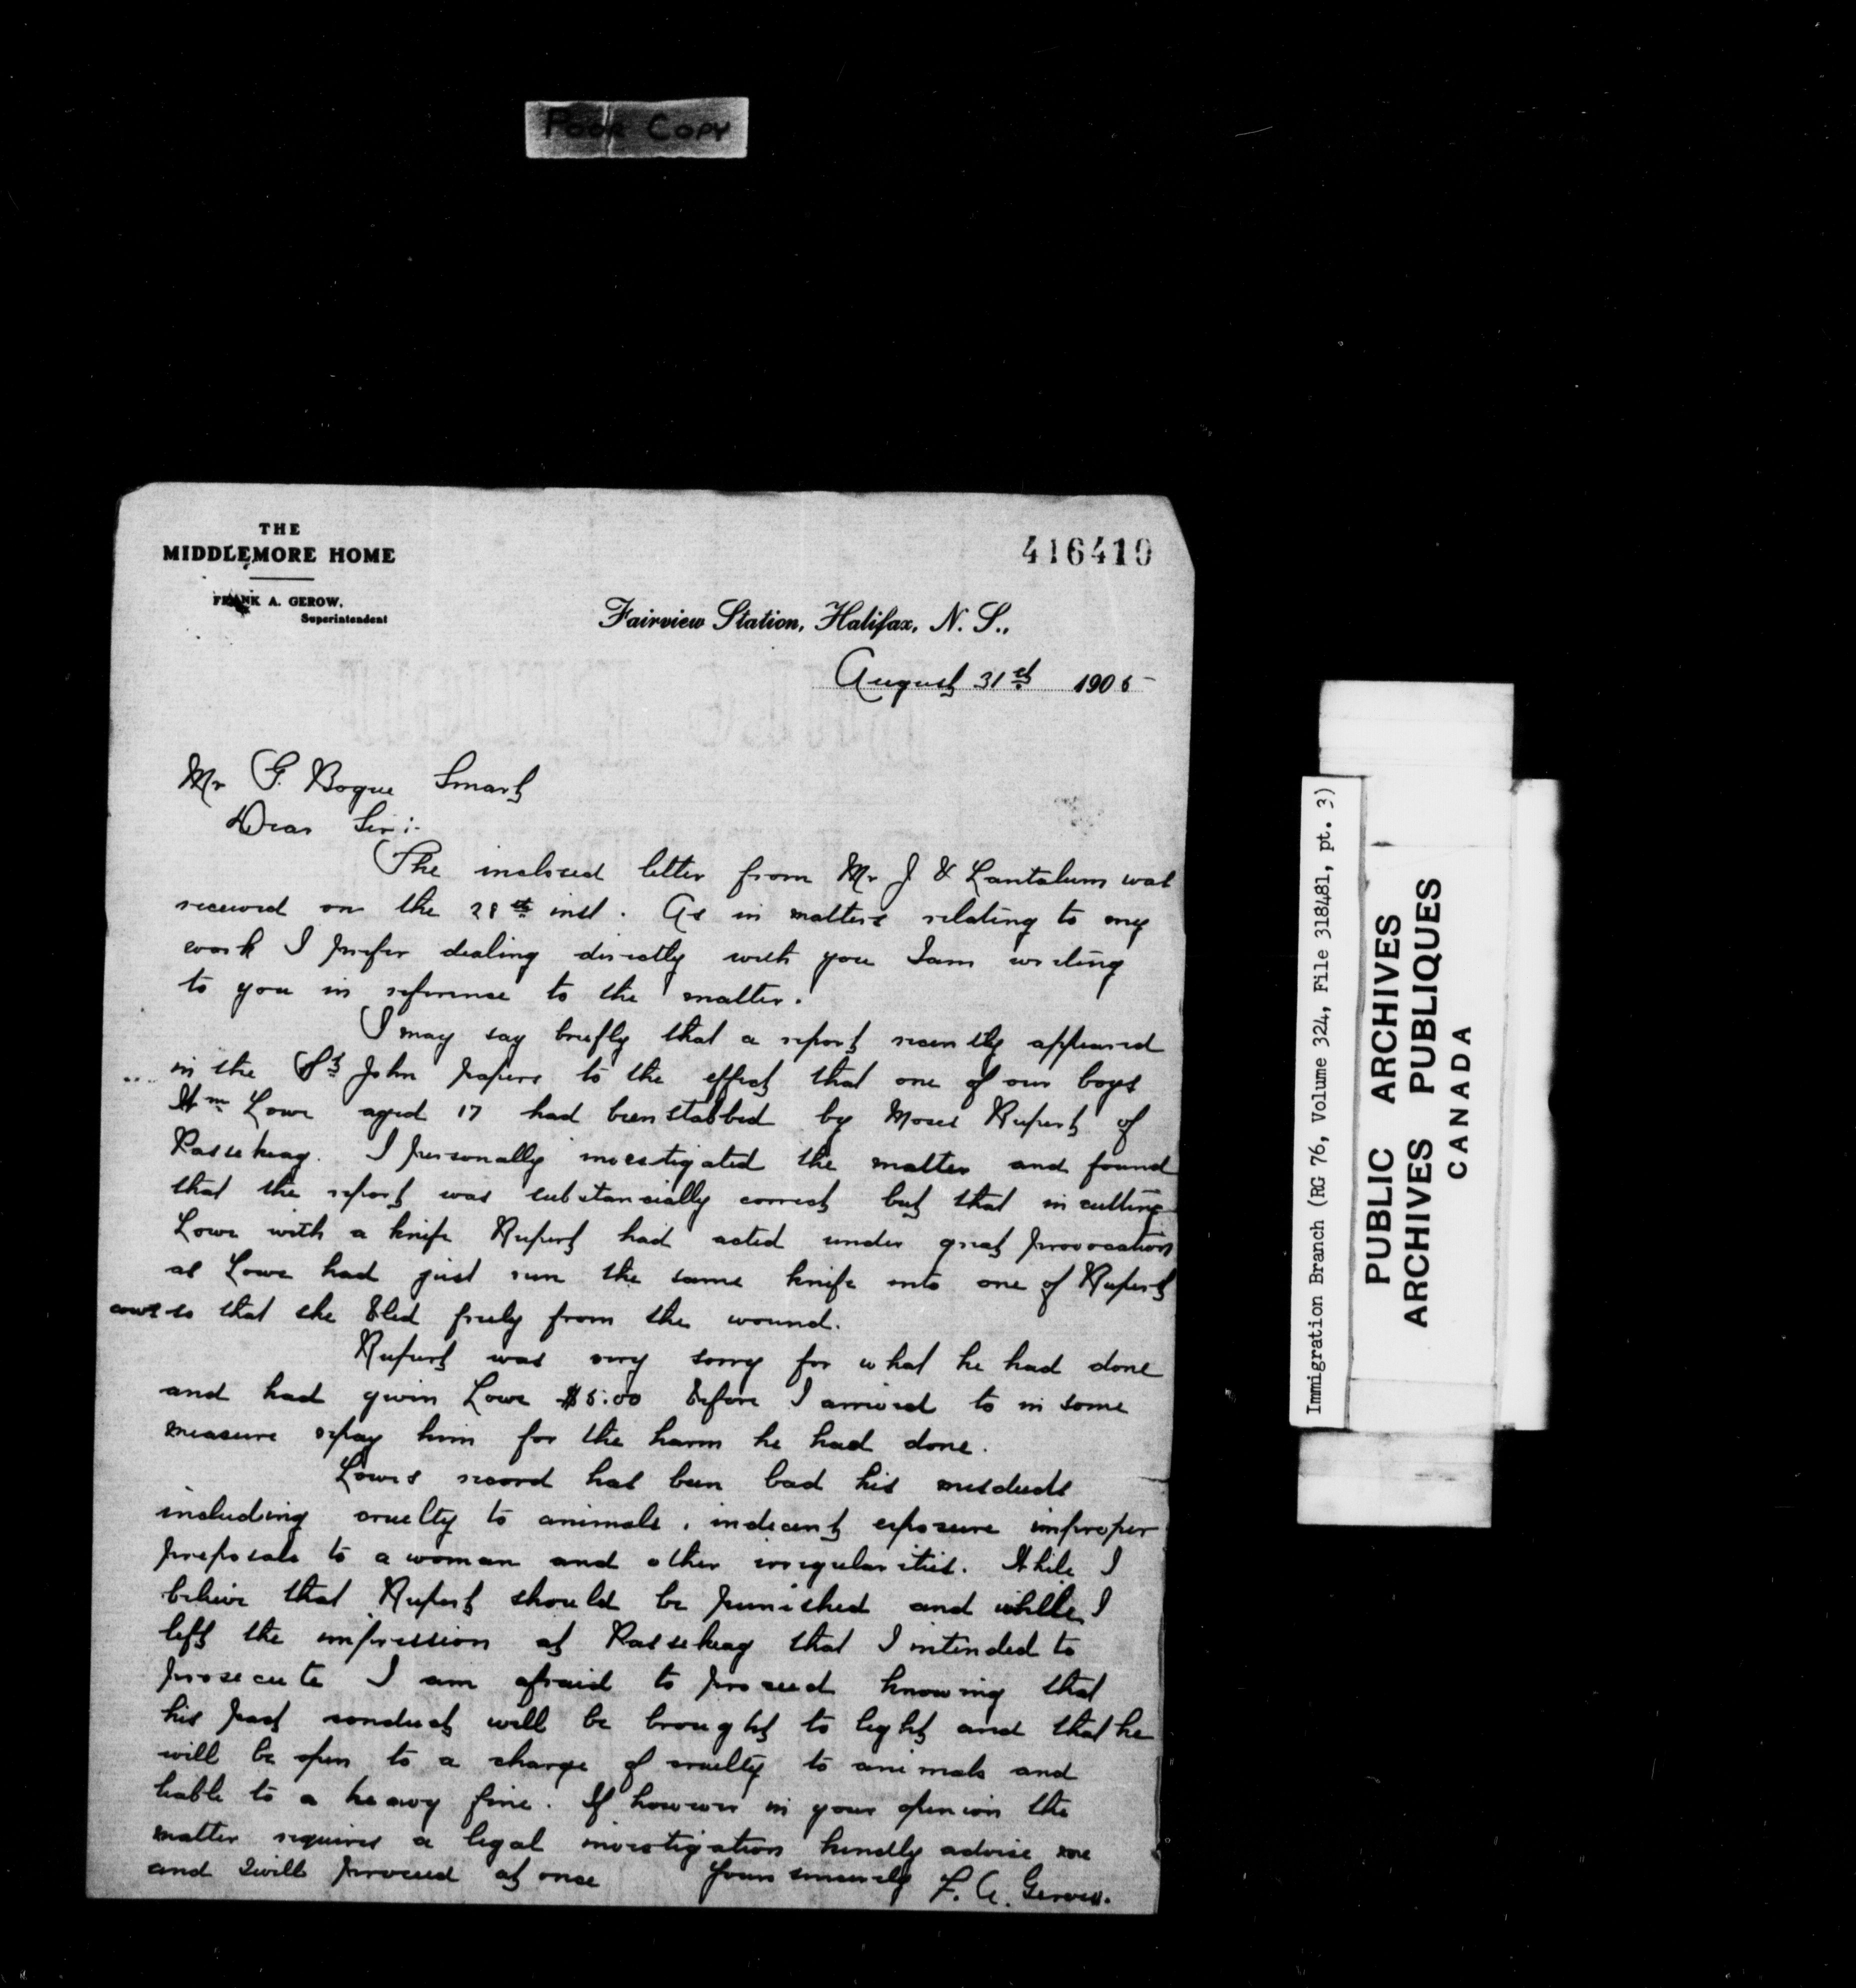 POOR COPY
THE
MIDDLEMORE HOME
FRANK A. GEROW,
Superintendent
416410
Fairview Station, Halifax, N. S.,
August 31st 1905
Mr G. Bogue Smart
Dear Sir:-
The inclosed letter from Mr J & Lantalum was
received on the 28th inst. As in matters relating to my
work I prefer dealing directly with you I am writing
to you in reference to the matter.
I may say briefly that a report recently appeared
in the St John papers to the effect that one of our boys
Wm Lowe aged 17 had been stabbed by Moses Rupert of
Passekeag. I personally investigated the matter and found
that the report was substancially correct but that in cutting
Lowe with a knife Rupert had acted under great provocation
as Lowe had just run the same knife into one of Rupert
cows so that she bled freely from the wound.
Rupert was very sorry for what he had done
and had given Lowe $5.00 before I arrived to in some
measure repay him for the harm he had done.
Lowes record has been bad his misdeeds
including cruelty to animals, indecent exposure improper
proposals to a woman and other irregularities. While I
believe that Rupert should be punished and while I
left the impression at Passekeag that I intended to
prosecute I am afraid to proceed knowing that
his past conduct will be brought to light and that he
will be open to a charge of cruelty to animals and
liable to a heavy fine. If however in your opinion the
matter requires a legal investigation kindly advise me
and I will proceed at once Yours sincerely F. A. Gerow.
Immigration Branch (RG 76, Volume 324, File 318481, pt. 3)
PUBLIC ARCHIVES
ARCHIVES PUBLIQUES
CANADA